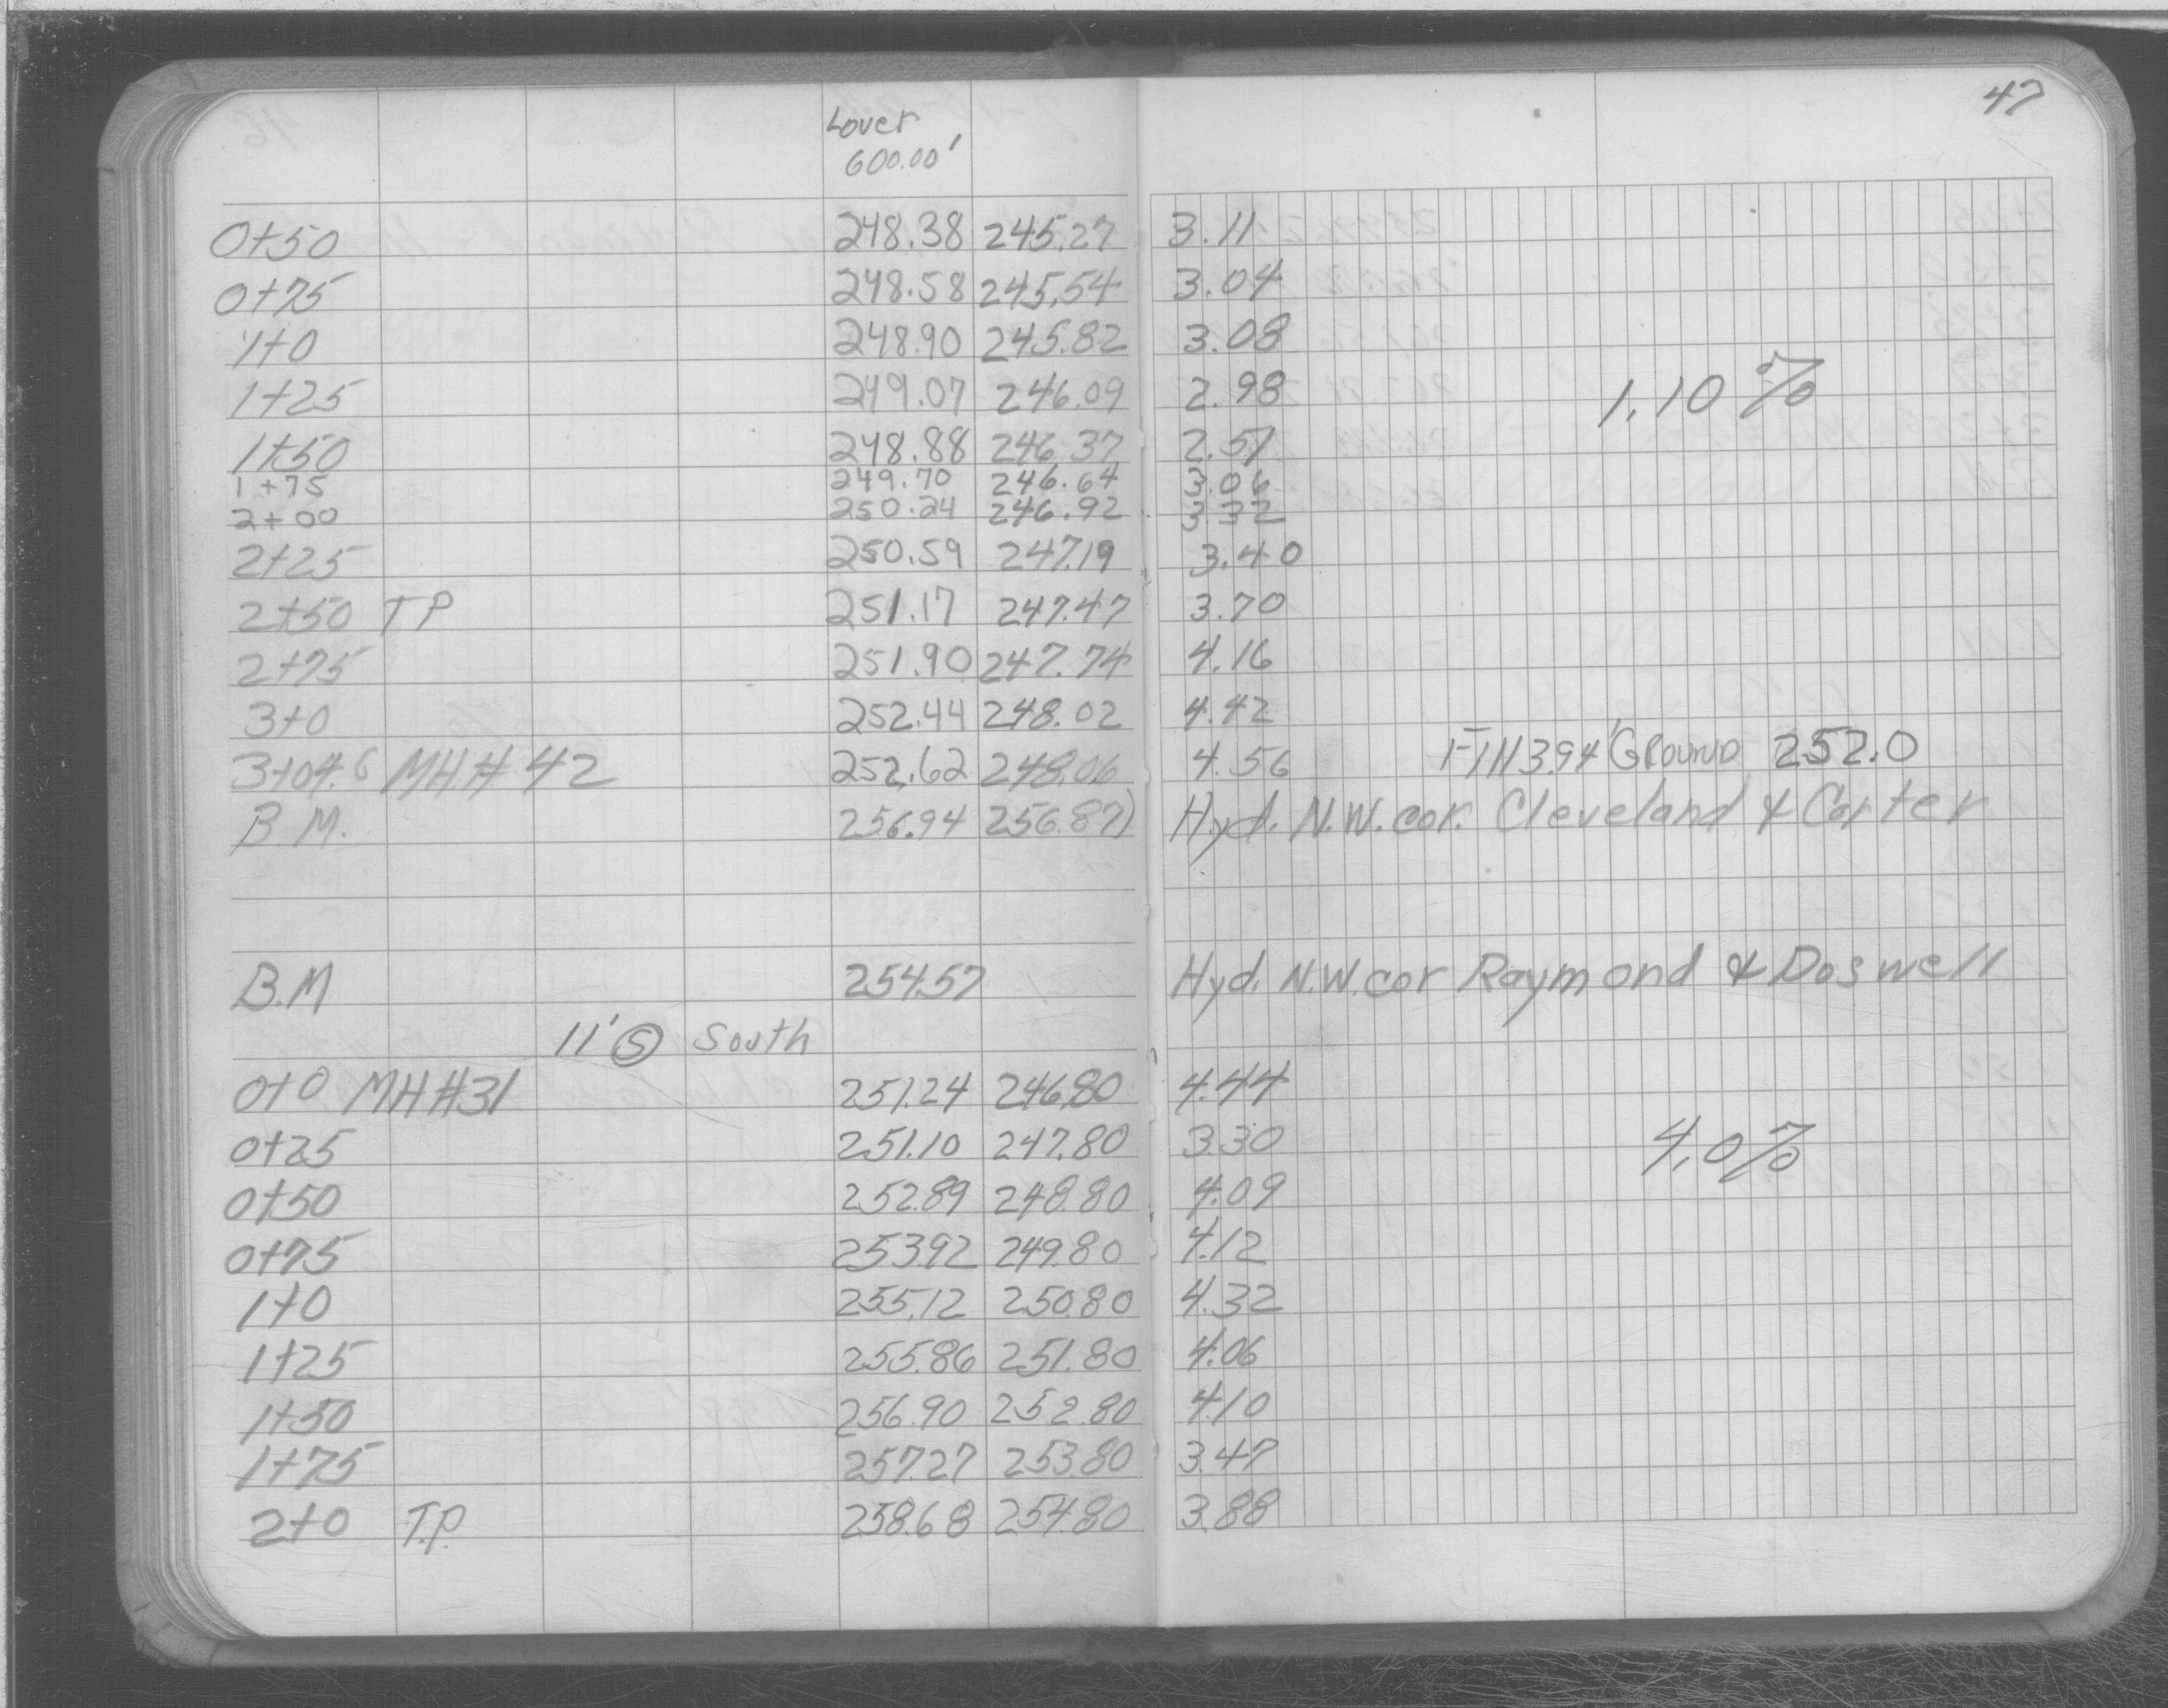 47
Lower
600.00'
0+50 248.38 245.27 3.11
0+75 248.58 245.54 3.04
1+0 248.90 245.82 3.08
1+25 249.07 246.09 2.98
1.10%
1+50 248.88 246.37 2.51
1+75 249.70 246.64 3.06
2+00 250.24 246.92 3.32
2+25 250.59 247.19 3.40
2+50 TP 251.17 247.47 3.70
2+75 251.90 247.74 4.16
3+0 252.44 248.02 4.42
3+04.6 MH#42 252.62 248.06 4.56 Fill 3.94' Ground 252.0
B.M. 256.94 256.87) Hyd. N.W. cor. Cleveland & Carter
B.M 254.57 Hyd. N.W. cor Raymond & Doswell
11' Ⓢ South
0+0 MH#31 251.24 246.80 4.44
0+25 251.10 247.80 3.30 4.0%
0+50 252.89 248.80 4.09
0+75 253.92 249.80 4.12
1+0 255.12 250.80 4.32
1+25 255.86 251.80 4.06
1+50 256.90 252.80 4.10
1+75 257.27 253.80 3.47
2+0 T.P. 258.68 254.80 3.88